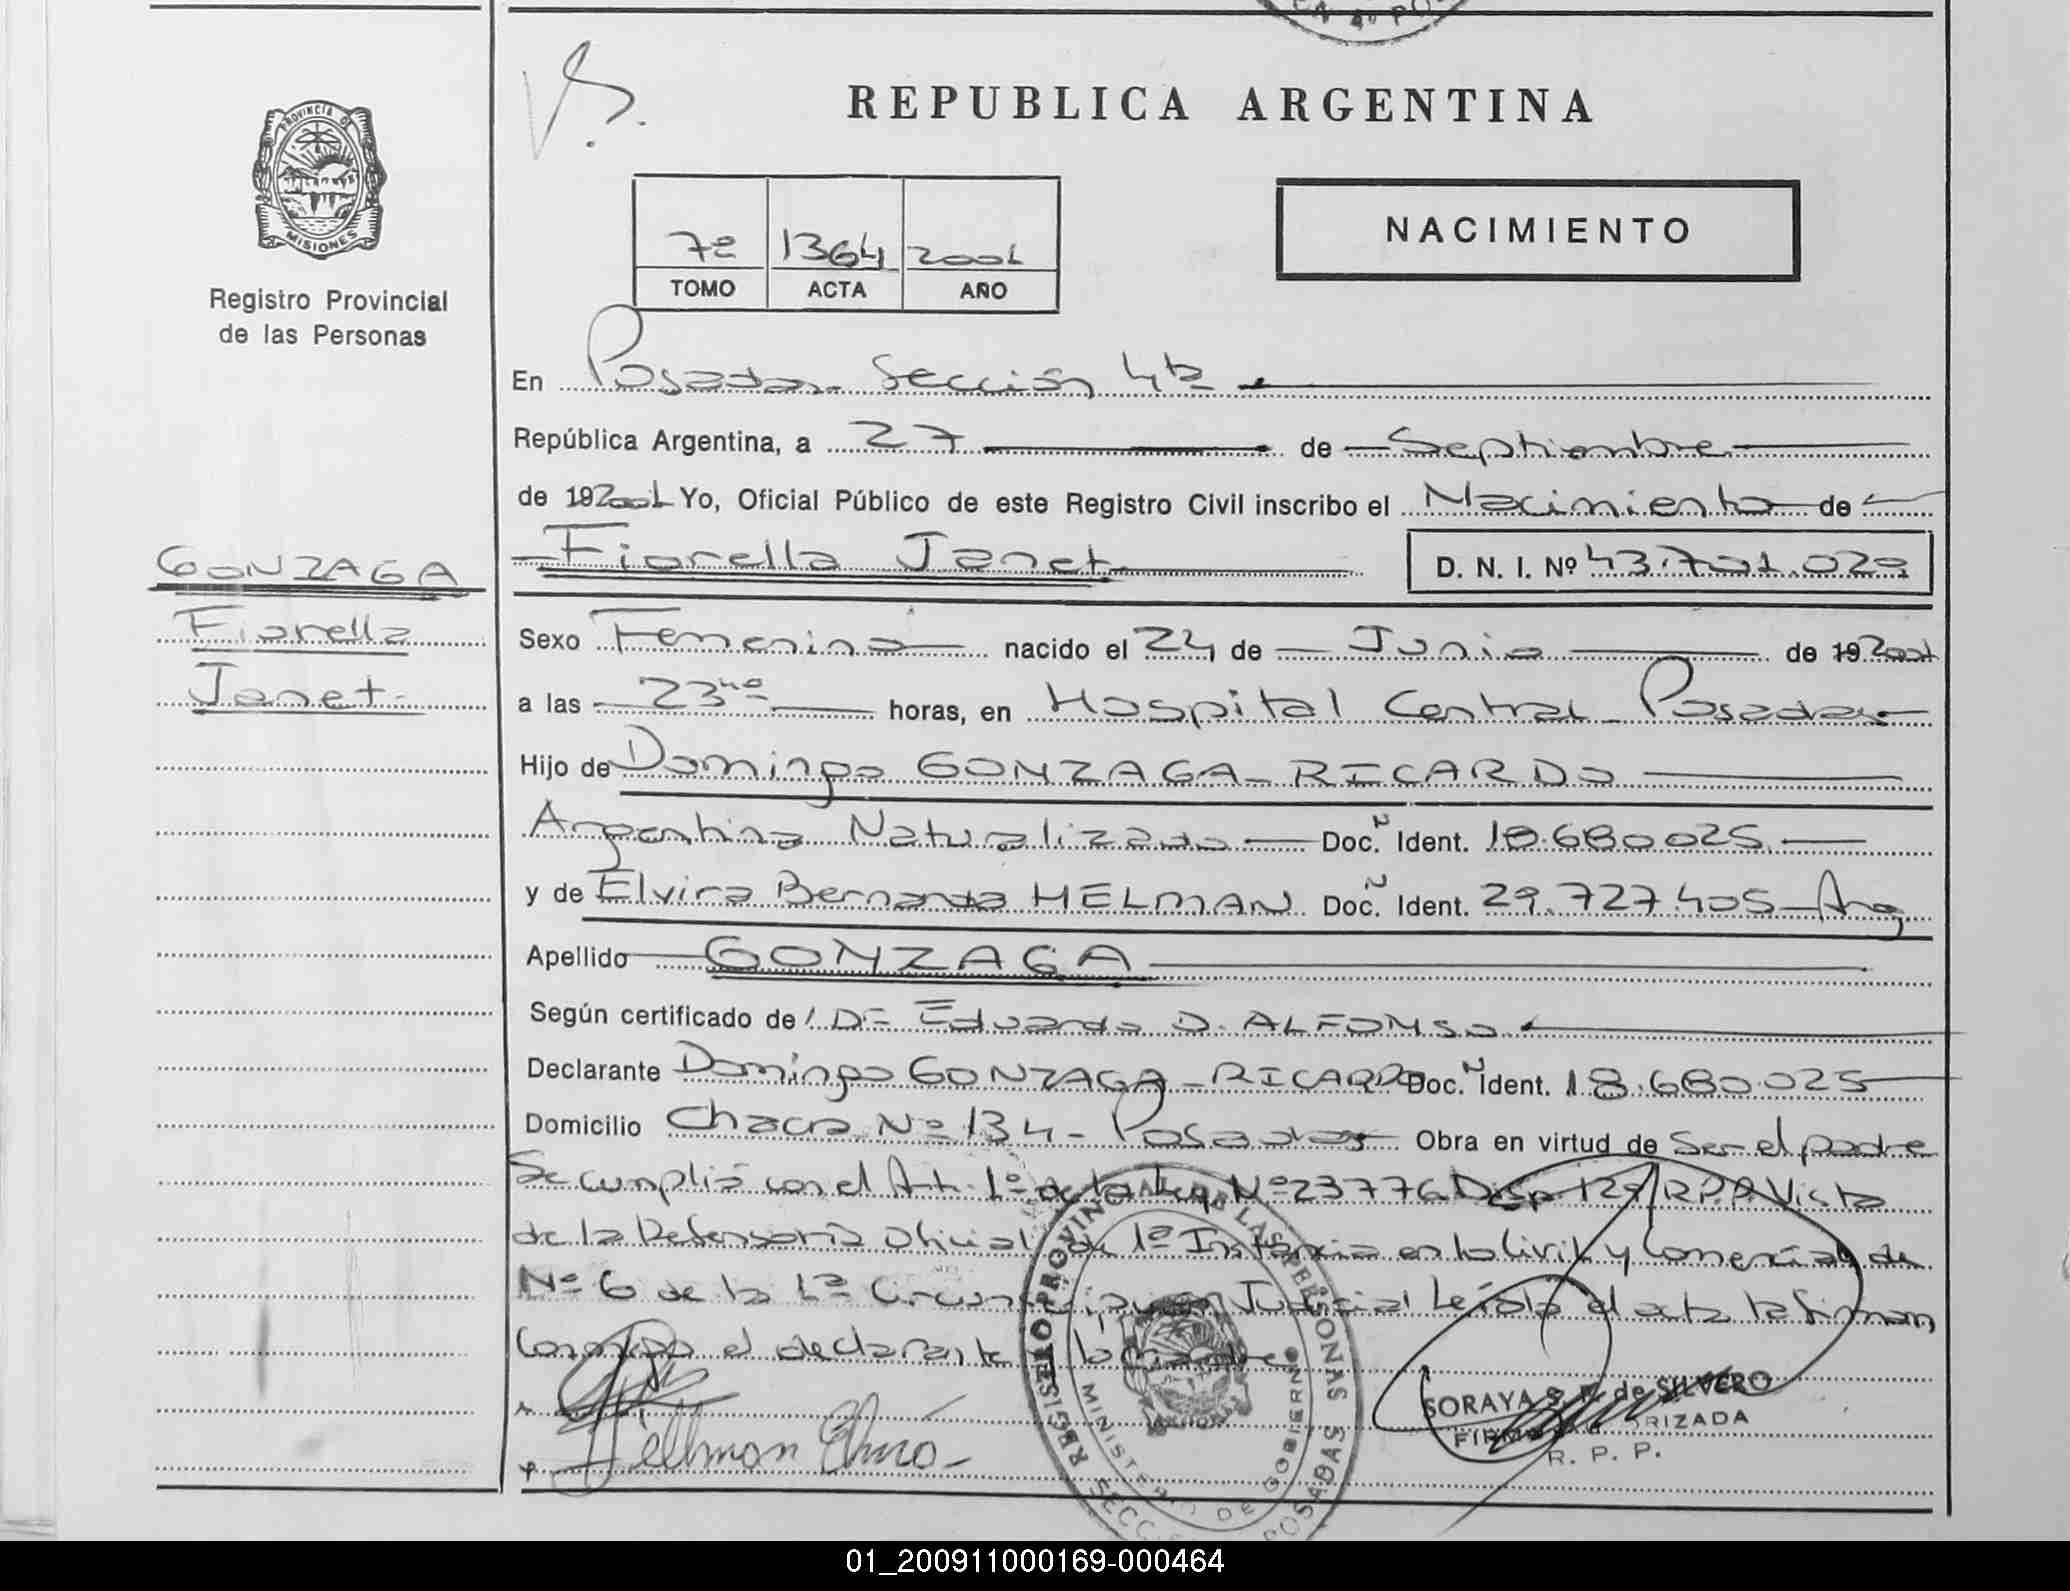 REPUBLICA ARGENTINA
PROVINCIA DE
MISIONES
Registro Provincial
de las Personas
7º 1364 2001
TOMO ACTA AÑO
NACIMIENTO
En Posadas Sección 4ta
República Argentina, a 27 de Septiembre
de 192001 Yo, Oficial Público de este Registro Civil inscribo el Nacimiento de
Fiorella Janet D. N. I. Nº 43.701.029
GONZAGA
Fiorella
Janet
Sexo Femenino nacido el 24 de Junio de 192001
a las 23⁴⁰ horas, en Hospital Central Posadas
Hijo de Domingo GONZAGA-RICARDO
Argentino Naturalizado Doc.N Ident. 18.680025
y de Elvira Bernarda HELMAN Doc.N Ident. 29.727.405-Arg
Apellido GONZAGA
Según certificado de Dr Eduardo D. ALFONSO
Declarante Domingo GONZAGA-RICARDO Doc.N Ident. 18.680.025
Domicilio Chacra Nº 134- Posadas Obra en virtud de Ser el padre
Se cumplió con el Art. 1º de la Ley Nº 23776 Disp 129 R.P.P. Vista
de la Defensoría Oficial de 1º Instancia en lo Civil y Comercial de
Nº 6 de la 1ª Circunscripción Judicial Leída el acta la firman
conmigo el declarante y la madre
Hellman Elvira
REGISTRO PROVINCIAL DE LAS PERSONAS
MINISTERIO DE GOBIERNO
POSADAS
SORAYA S. de SILVERO
R. P. P.
01_200911000169-000464